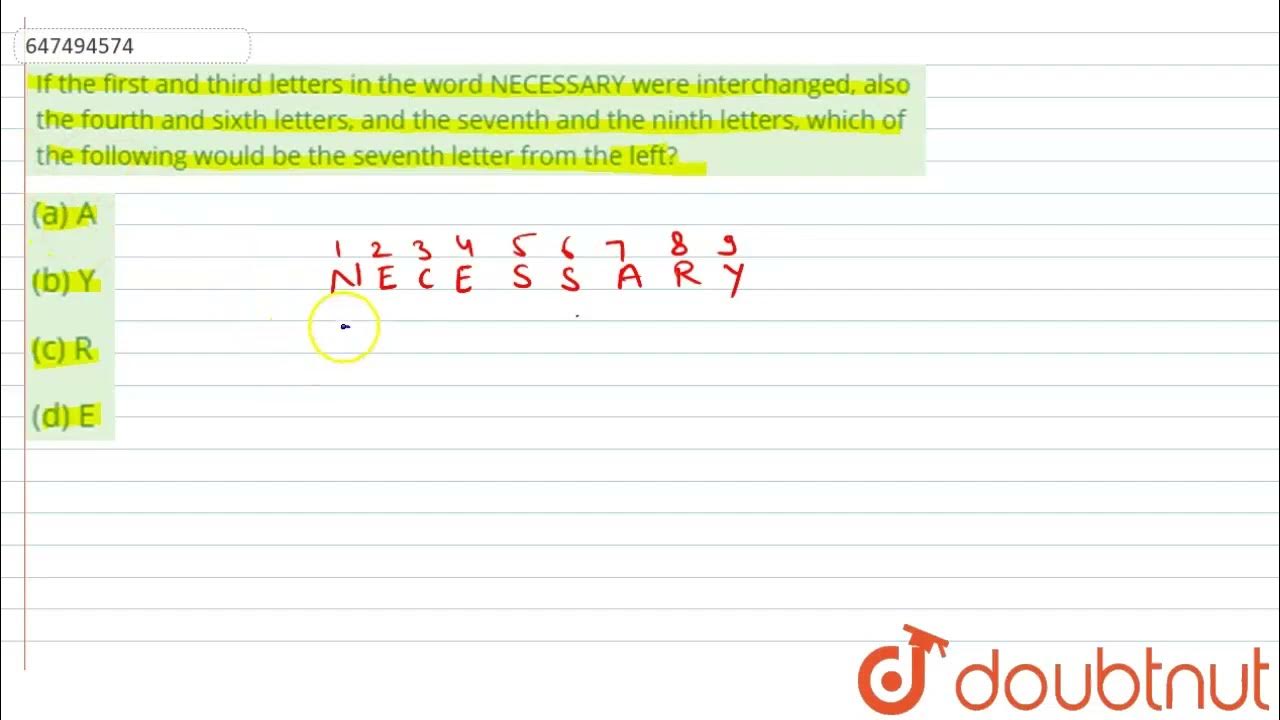 647494574
If the first and third letters in the word NECESSARY were interchanged, also
the fourth and sixth letters, and the seventh and the ninth letters, which of
the following would be the seventh letter from the left?
(a) A
(b) Y
(c) R
(d) E
1 2 3 4 5 6 7 8 9
N E C E S S A R Y
doubtnut